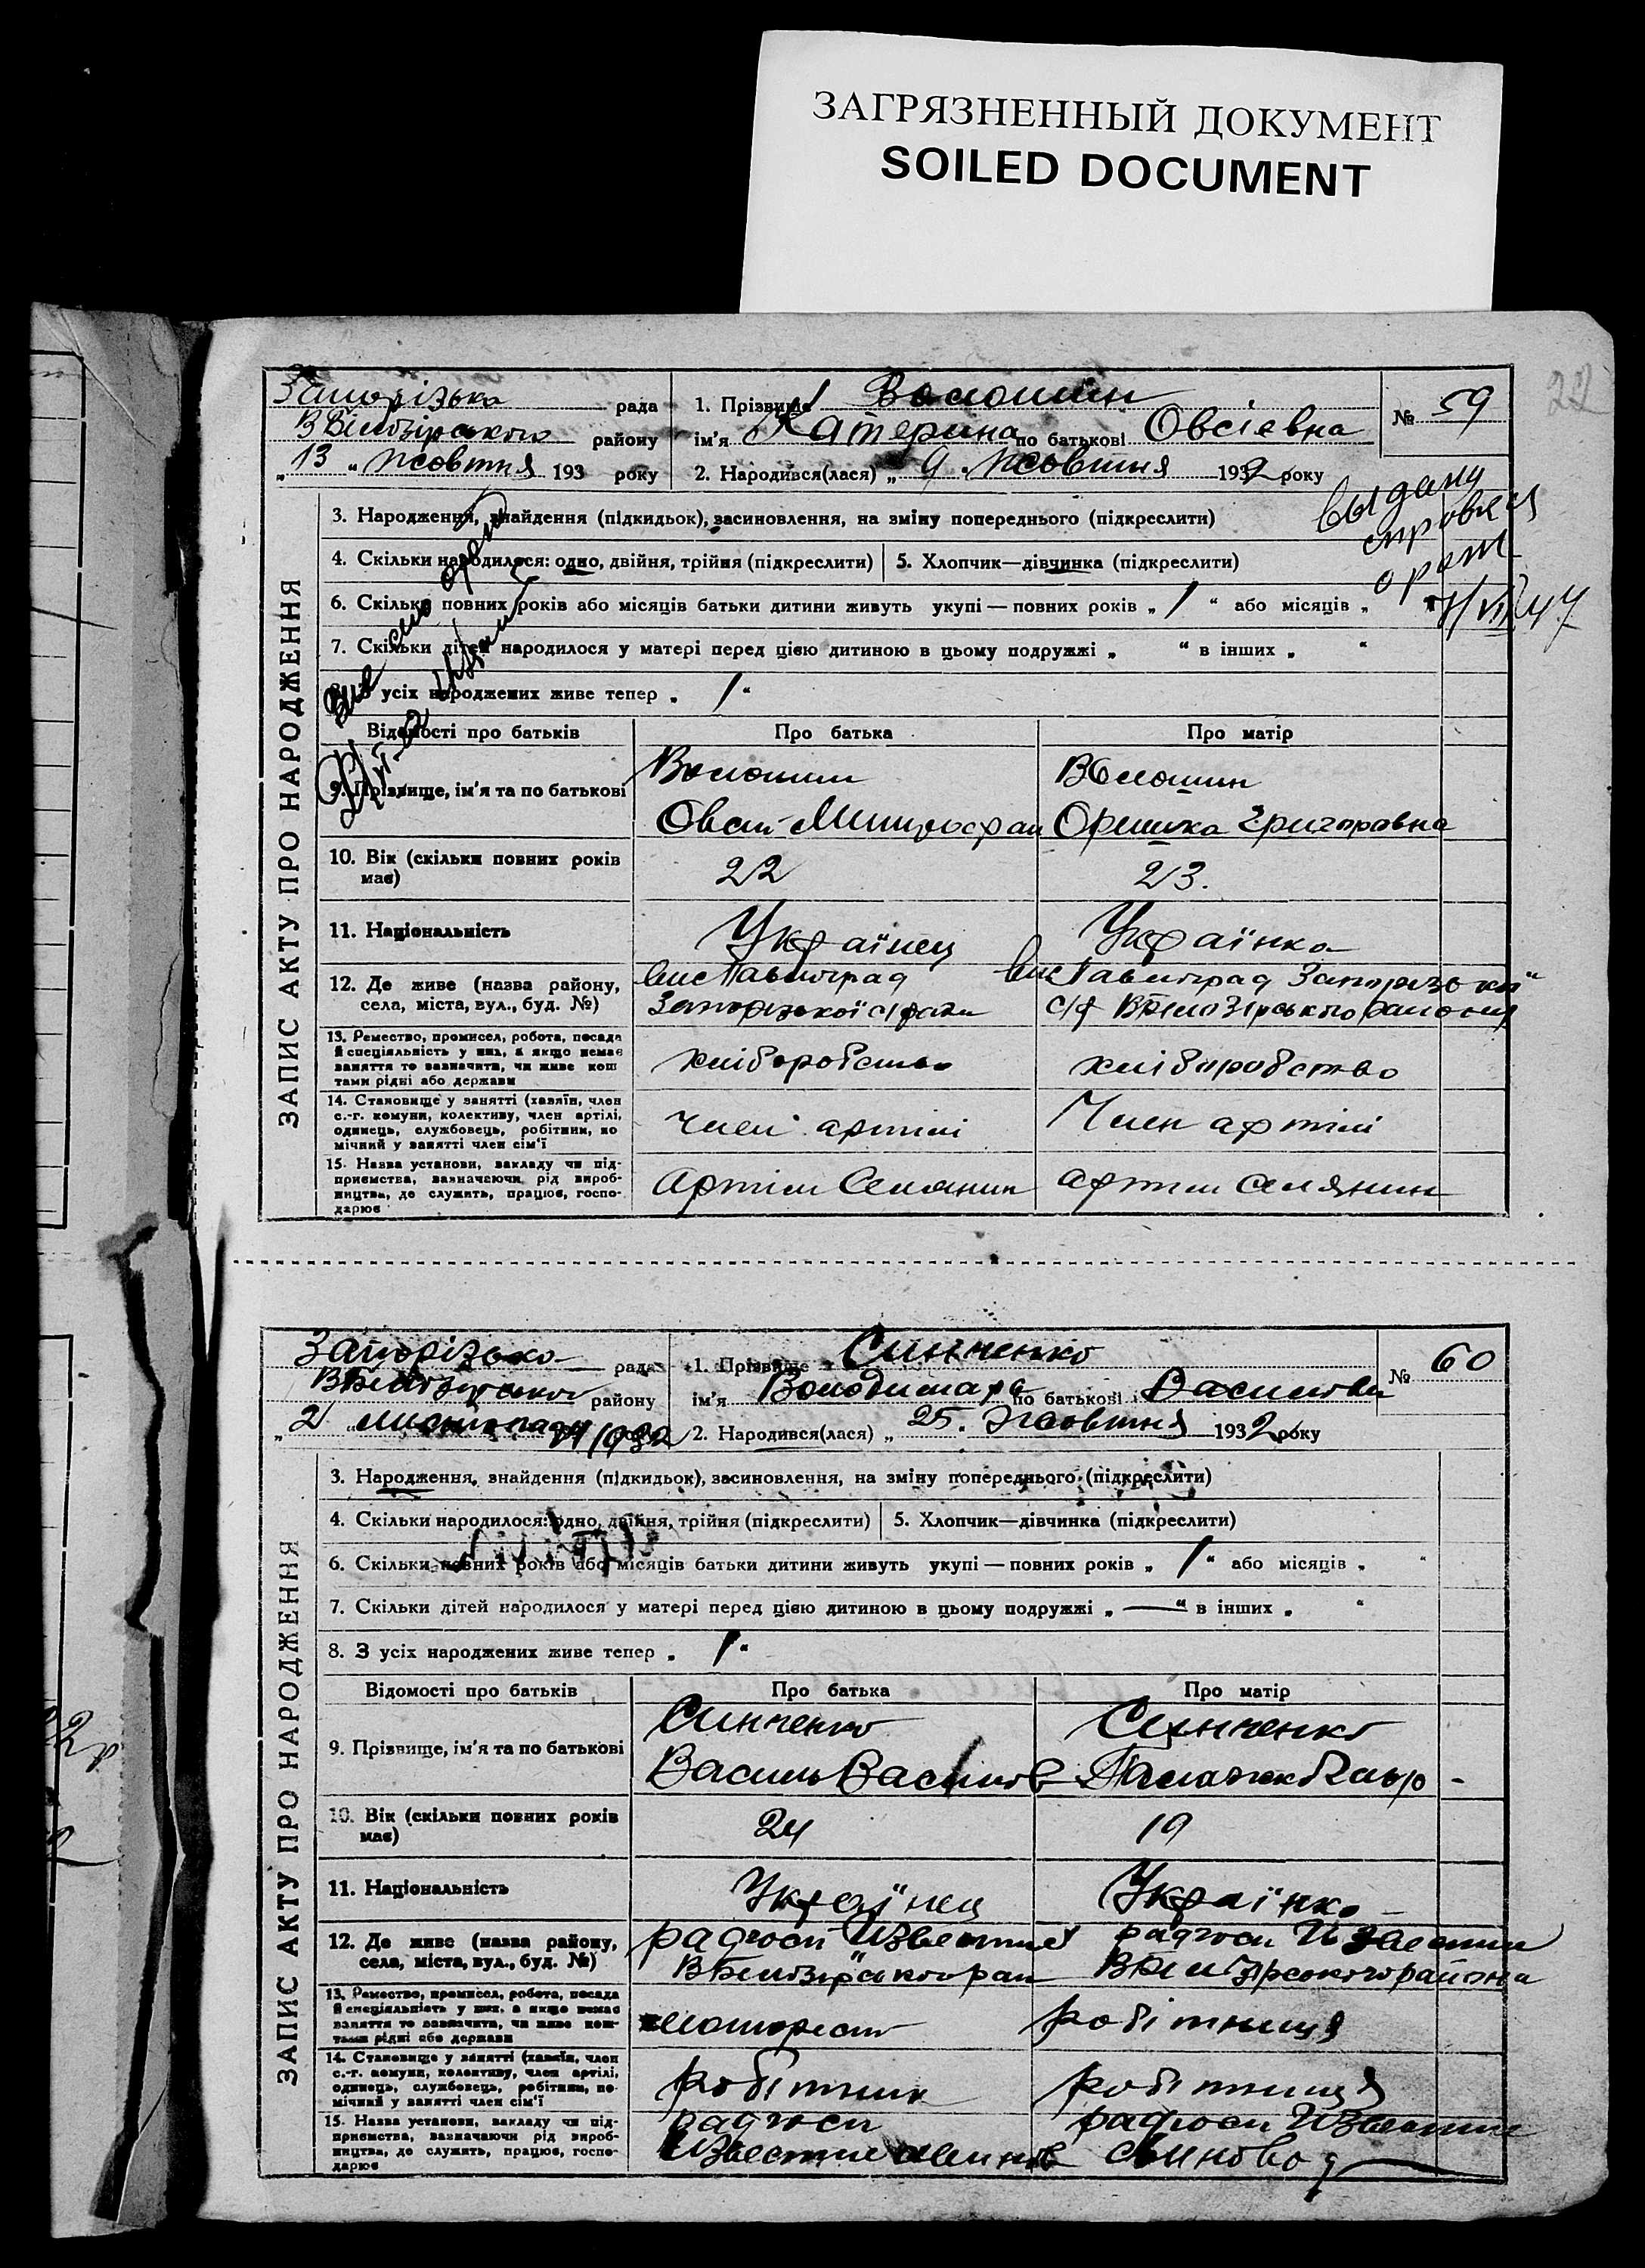 ЗАГРЯЗНЕННЫЙ ДОКУМЕНТ
SOILED DOCUMENT
22
Запорізька рада
ВБілозірського району
„ 13 " жовтня 193 року
1. Прізвище Волошин
ім'я Катерина по батькові Овсіевна
2. Народився(лася) „ 9 . жовтня 1932 року
№ 59
выдана
справка
7/VII 47
ЗАПИС АКТУ ПРО НАРОДЖЕННЯ
3. Народження, знайдення (підкидьок), засиновлення, на зміну попереднього (підкреслити)
4. Скільки народилося: одно, двійня, трійня (підкреслити)
5. Хлопчик—дівчинка (підкреслити)
6. Скільки повних років або місяців батьки дитини живуть укупі — повних років „ 1 " або місяців „
7. Скільки дітей народилося у матері перед цією дитиною в цьому подружжі „ " в інших „ "
8. З усіх народжених живе тепер „ 1 "
Відомості про батьків Про батька Про матір
9. Прізвище, ім'я та по батькові
Волошин Волошин
Овсій Оришка Григоровна
10. Вік (скільки повних років має) 22 23.
11. Національність Українец Українка
12. Де живе (назва району, села, міста, вул., буд. №)
вис Павлоград вис Павлоград Запорізької
Запорізької с/ради с/р ВБілозірського района
13. Ремество, промисел, робота, посада й спеціяльність у них, а якщо немає заняття то зазначити, чи живе коштами рідні або держави
хліборобство хліборобство
14. Становище у занятті (хазяїн, член с.-г. комуни, колективу, член артілі, одинець, службовець, робітник, помічний у занятті член сім'ї
член артілі Член артілі
15. Назва установи, закладу чи підприємства, зазначаючи рід виробництва, де служить, працює, господарює
Артіль Селянин артіль селянин
Запорізька рада
ВБілозірського району
„ 2 " листопада 1932
1. Прізвище Синченко
ім'я Володимара по батькові Василови
2. Народився(лася) „ 25. жовтня 1932 року
№ 60
ЗАПИС АКТУ ПРО НАРОДЖЕННЯ
3. Народження, знайдення (підкидьок), засиновлення, на зміну попереднього (підкреслити)
4. Скільки народилося: одно, двійня, трійня (підкреслити)
5. Хлопчик—дівчинка (підкреслити)
6. Скільки повних років або місяців батьки дитини живуть укупі — повних років „ 1 " або місяців „ "
7. Скільки дітей народилося у матері перед цією дитиною в цьому подружжі „ — " в інших „ "
8. З усіх народжених живе тепер „ 1 "
Відомості про батьків Про батька Про матір
9. Прізвище, ім'я та по батькові
Синченко Синченко
Василь Василов
10. Вік (скільки повних років має) 24 19
11. Національність Українец Українка
12. Де живе (назва району, села, міста, вул., буд. №)
радгосп Известие радгосп Известие
ВБілозірського рай ВБілозірського района
13. Ремество, промисел, робота, посада й спеціяльність у них, а якщо немає заняття то зазначити, чи живе коштами рідні або держави
моторист робітниця
14. Становище у занятті (хазяїн, член с.-г. комуни, колективу, член артілі, одинець, службовець, робітник, помічний у занятті член сім'ї
робітник робітниця
15. Назва установи, закладу чи підприємства, зазначаючи рід виробництва, де служить, працює, господарює
радгосп радгосп Известие
Известие свинов свиновод